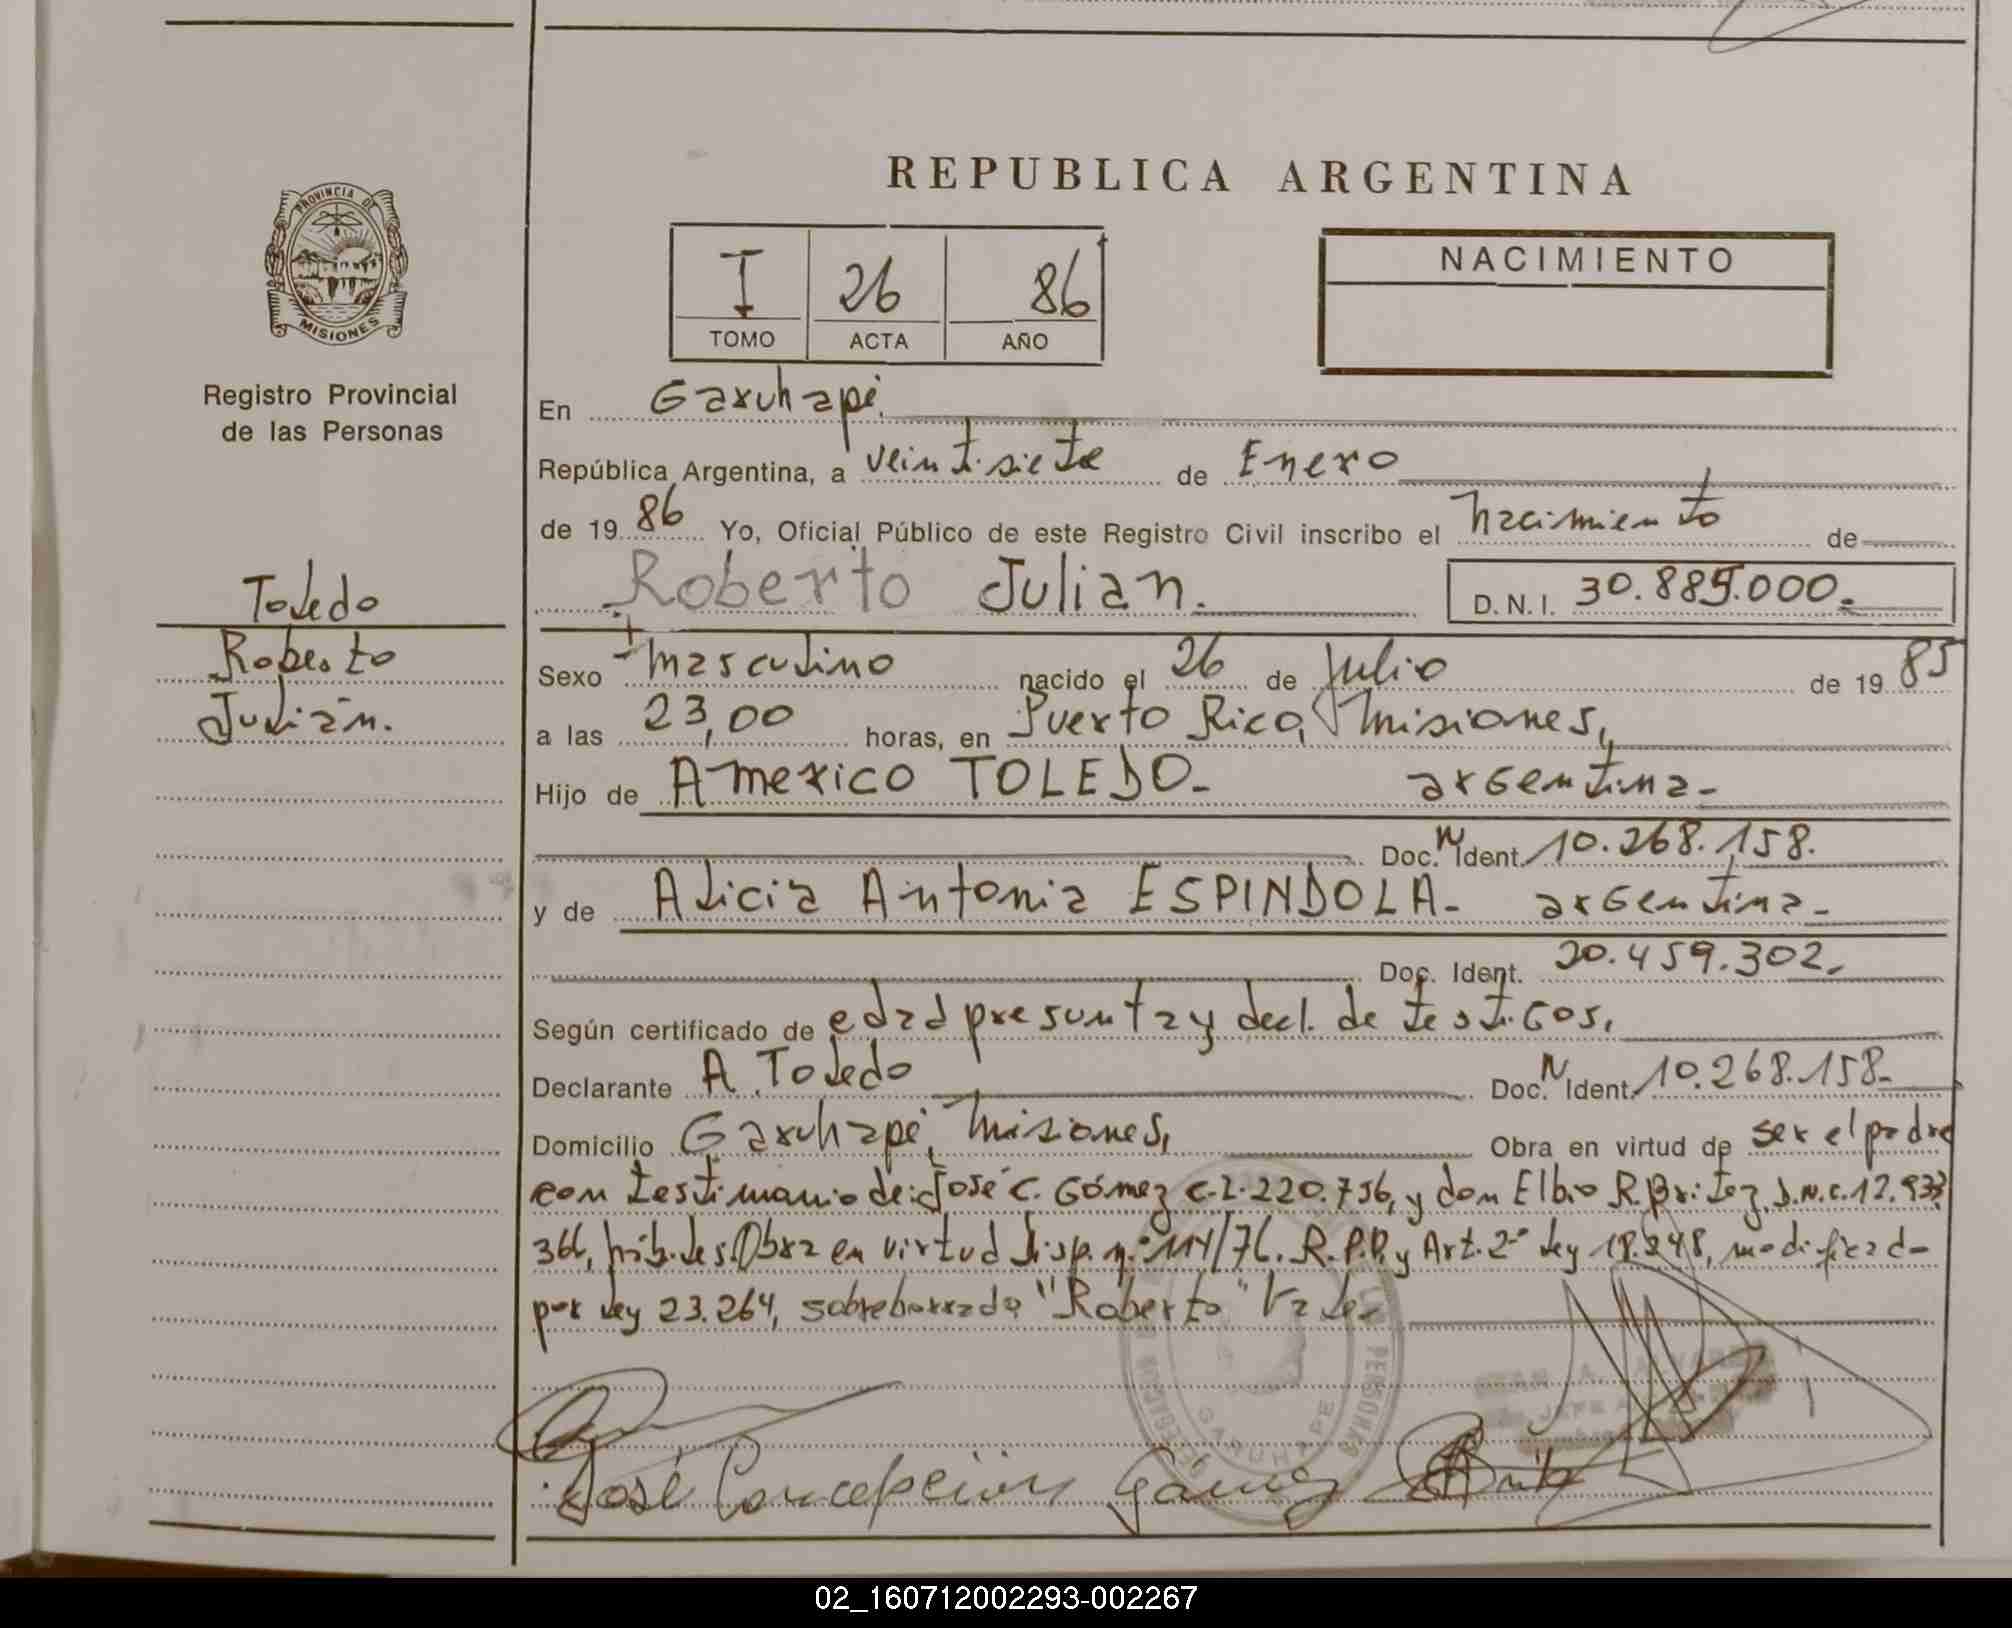 REPUBLICA ARGENTINA
PROVINCIA DE
MISIONES
Registro Provincial
de las Personas
Toledo
Roberto
Julián.
I 26 86
TOMO ACTA AÑO
NACIMIENTO
En Garuhapé.
República Argentina, a veintisiete de Enero
de 19 86 Yo, Oficial Público de este Registro Civil inscribo el nacimiento de
Roberto Julian. D. N. I. 30.885.000.-
Sexo masculino nacido el 26 de Julio de 19 85
a las 23,00 horas, en Puerto Rico, Misiones,
Hijo de Americo TOLEDO- argentina-
Doc. N Ident. 10.268.158.
y de Alicia Antonia ESPINDOLA- argentina-
Doc. Ident. 20.459.302.
Según certificado de edad presunta y decl. de testigos,
Declarante A. Toledo Doc. N Ident. 10.268.158-
Domicilio Garuhapé, Misiones, Obra en virtud de ser el padre
con testimonio de: José C. Gómez C.I. 220.756, y don Elbio R. Britez, D.N.I. 12.933
366, háb. les. Obra en virtud Disp. n.º 114/76. R.P.P. y Art. 2º ley 18.248, modificado
por ley 23.264, sobreborrado "Roberto" Vale-
José Concepción Gómez
GARUHAPE
02_160712002293-002267